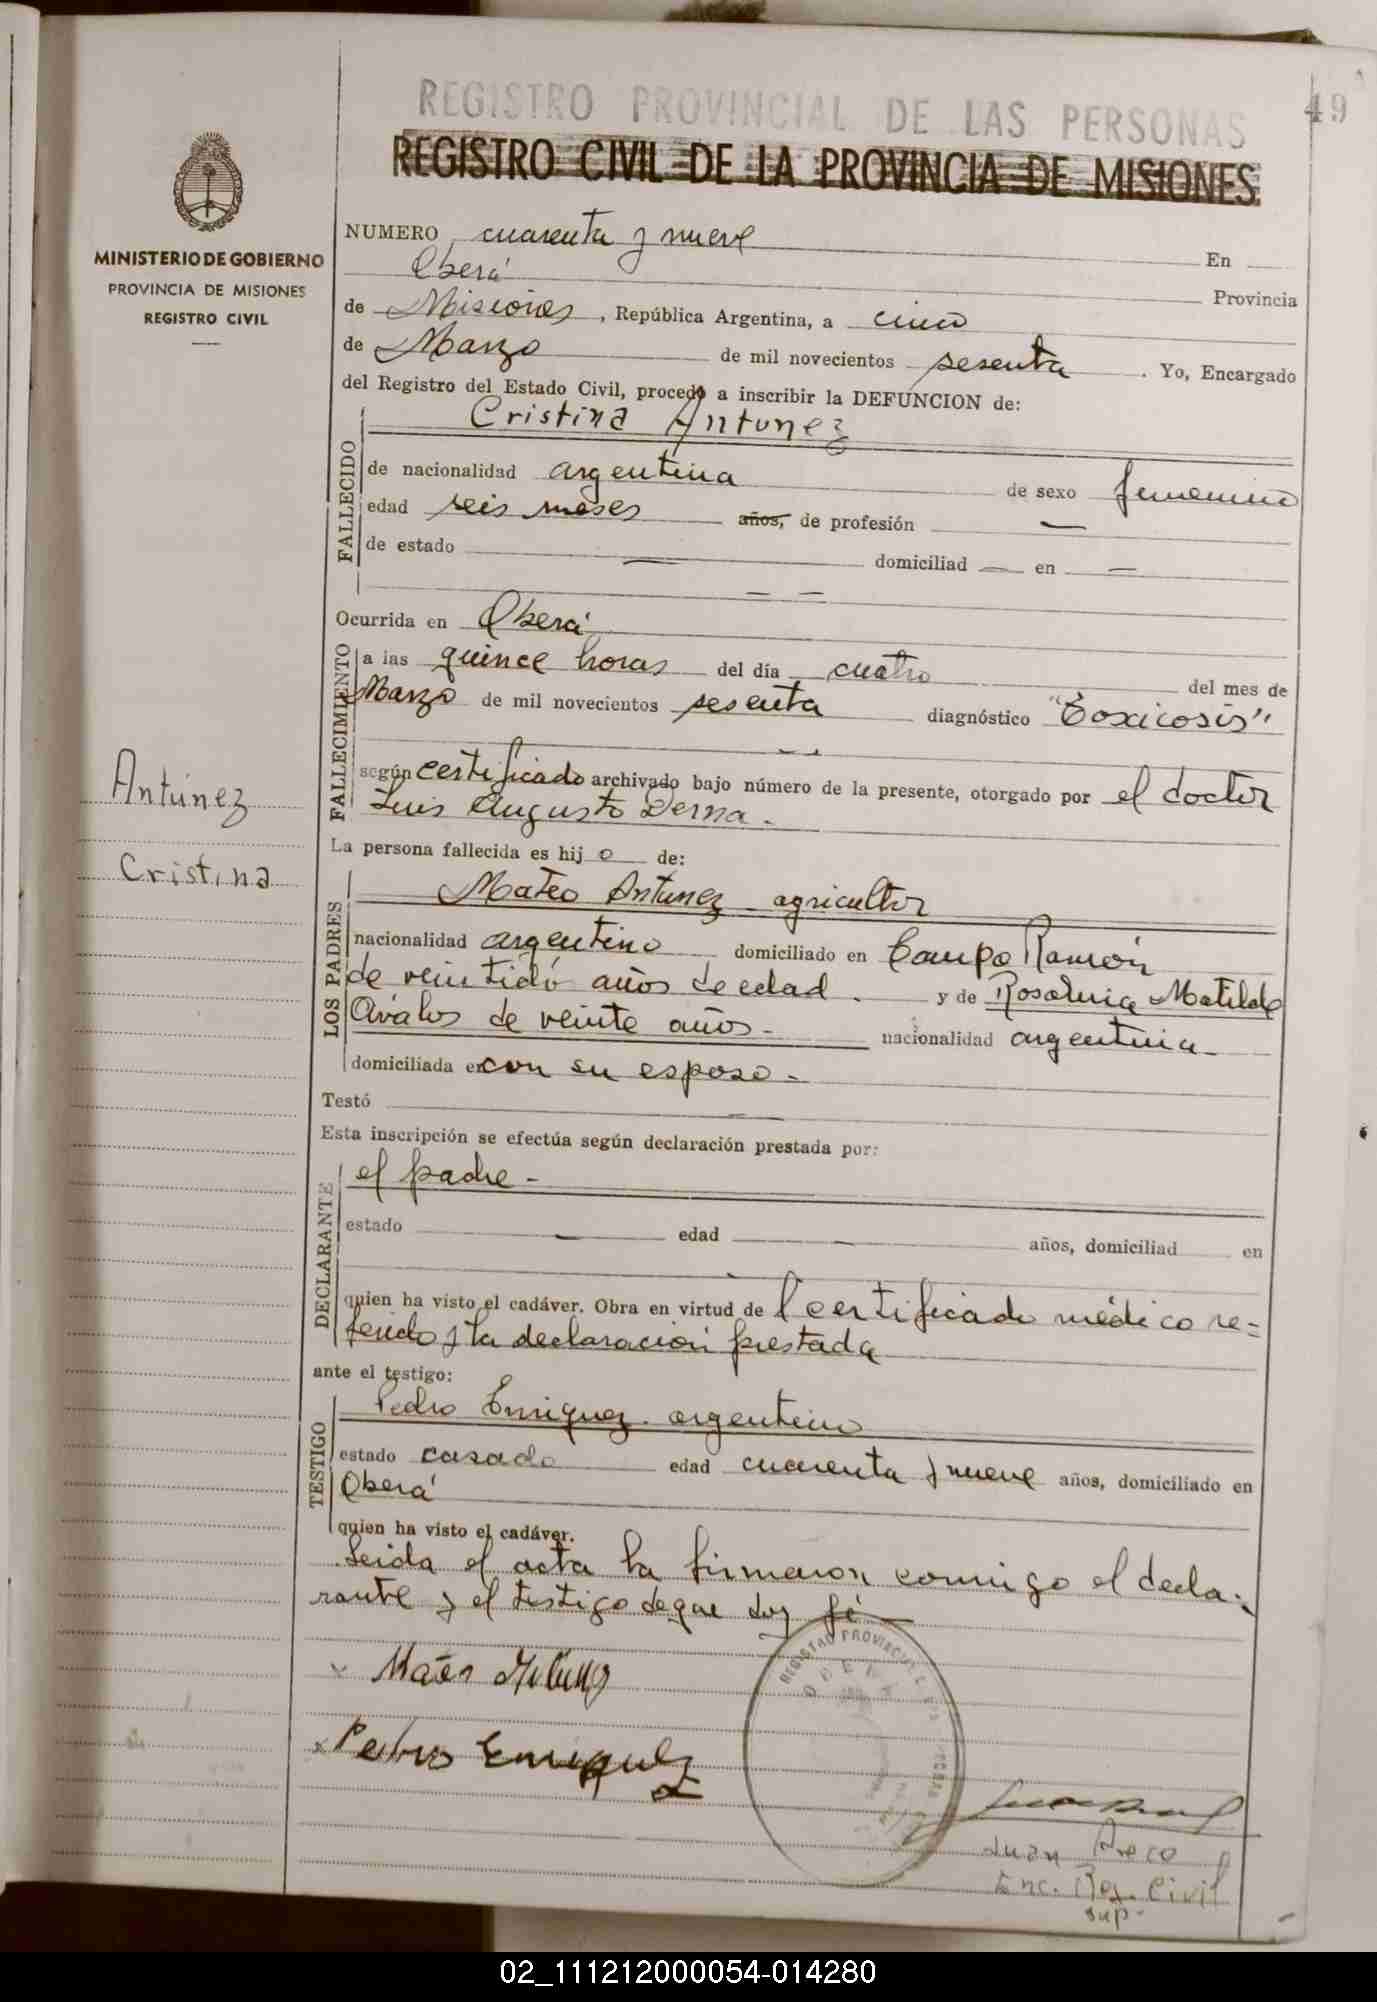 REGISTRO PROVINCIAL DE LAS PERSONAS
49
REGISTRO CIVIL DE LA PROVINCIA DE MISIONES
MINISTERIO DE GOBIERNO
PROVINCIA DE MISIONES
REGISTRO CIVIL
NUMERO cuarenta y nueve En
Oberá Provincia
de Misiones, República Argentina, a cinco
de Marzo de mil novecientos sesenta. Yo, Encargado
del Registro del Estado Civil, procedo a inscribir la DEFUNCION de:
Cristina Antunez
FALLECIDO
de nacionalidad argentina de sexo femenino
edad seis meses años, de profesión —
de estado — domiciliad — en —
— —
Ocurrida en Oberá
FALLECIMIENTO
a las quince horas del día cuatro del mes de
Marzo de mil novecientos sesenta diagnóstico "Toxicosis"
según certificado archivado bajo número de la presente, otorgado por el doctor
Luis Augusto Derna.-
Antúnez
Cristina
La persona fallecida es hijo de:
LOS PADRES
Mateo Antunez agricultor
nacionalidad argentino domiciliado en Campo Ramón
de veintidó años de edad. y de Rosalinia Matilde
Ávalos de veinte años- nacionalidad argentina-
domiciliada en con su esposo-
Testó —
Esta inscripción se efectúa según declaración prestada por:
DECLARANTE
el padre-
estado — edad — años, domiciliad en
quien ha visto el cadáver. Obra en virtud de l certificado médico re=
ferido y la declaración prestada
ante el testigo:
TESTIGO
Pedro Enriquez argentino
estado casado edad cuarenta y nueve años, domiciliado en
Oberá
quien ha visto el cadáver.
Leida el acta la firmaron conmigo el decla-
rante y el testigo de que doy fé—
Pedro Enriquez
REGISTRO PROVINCIAL
OBERA
Juan
Enc. Reg. Civil
sup.
02_111212000054-014280